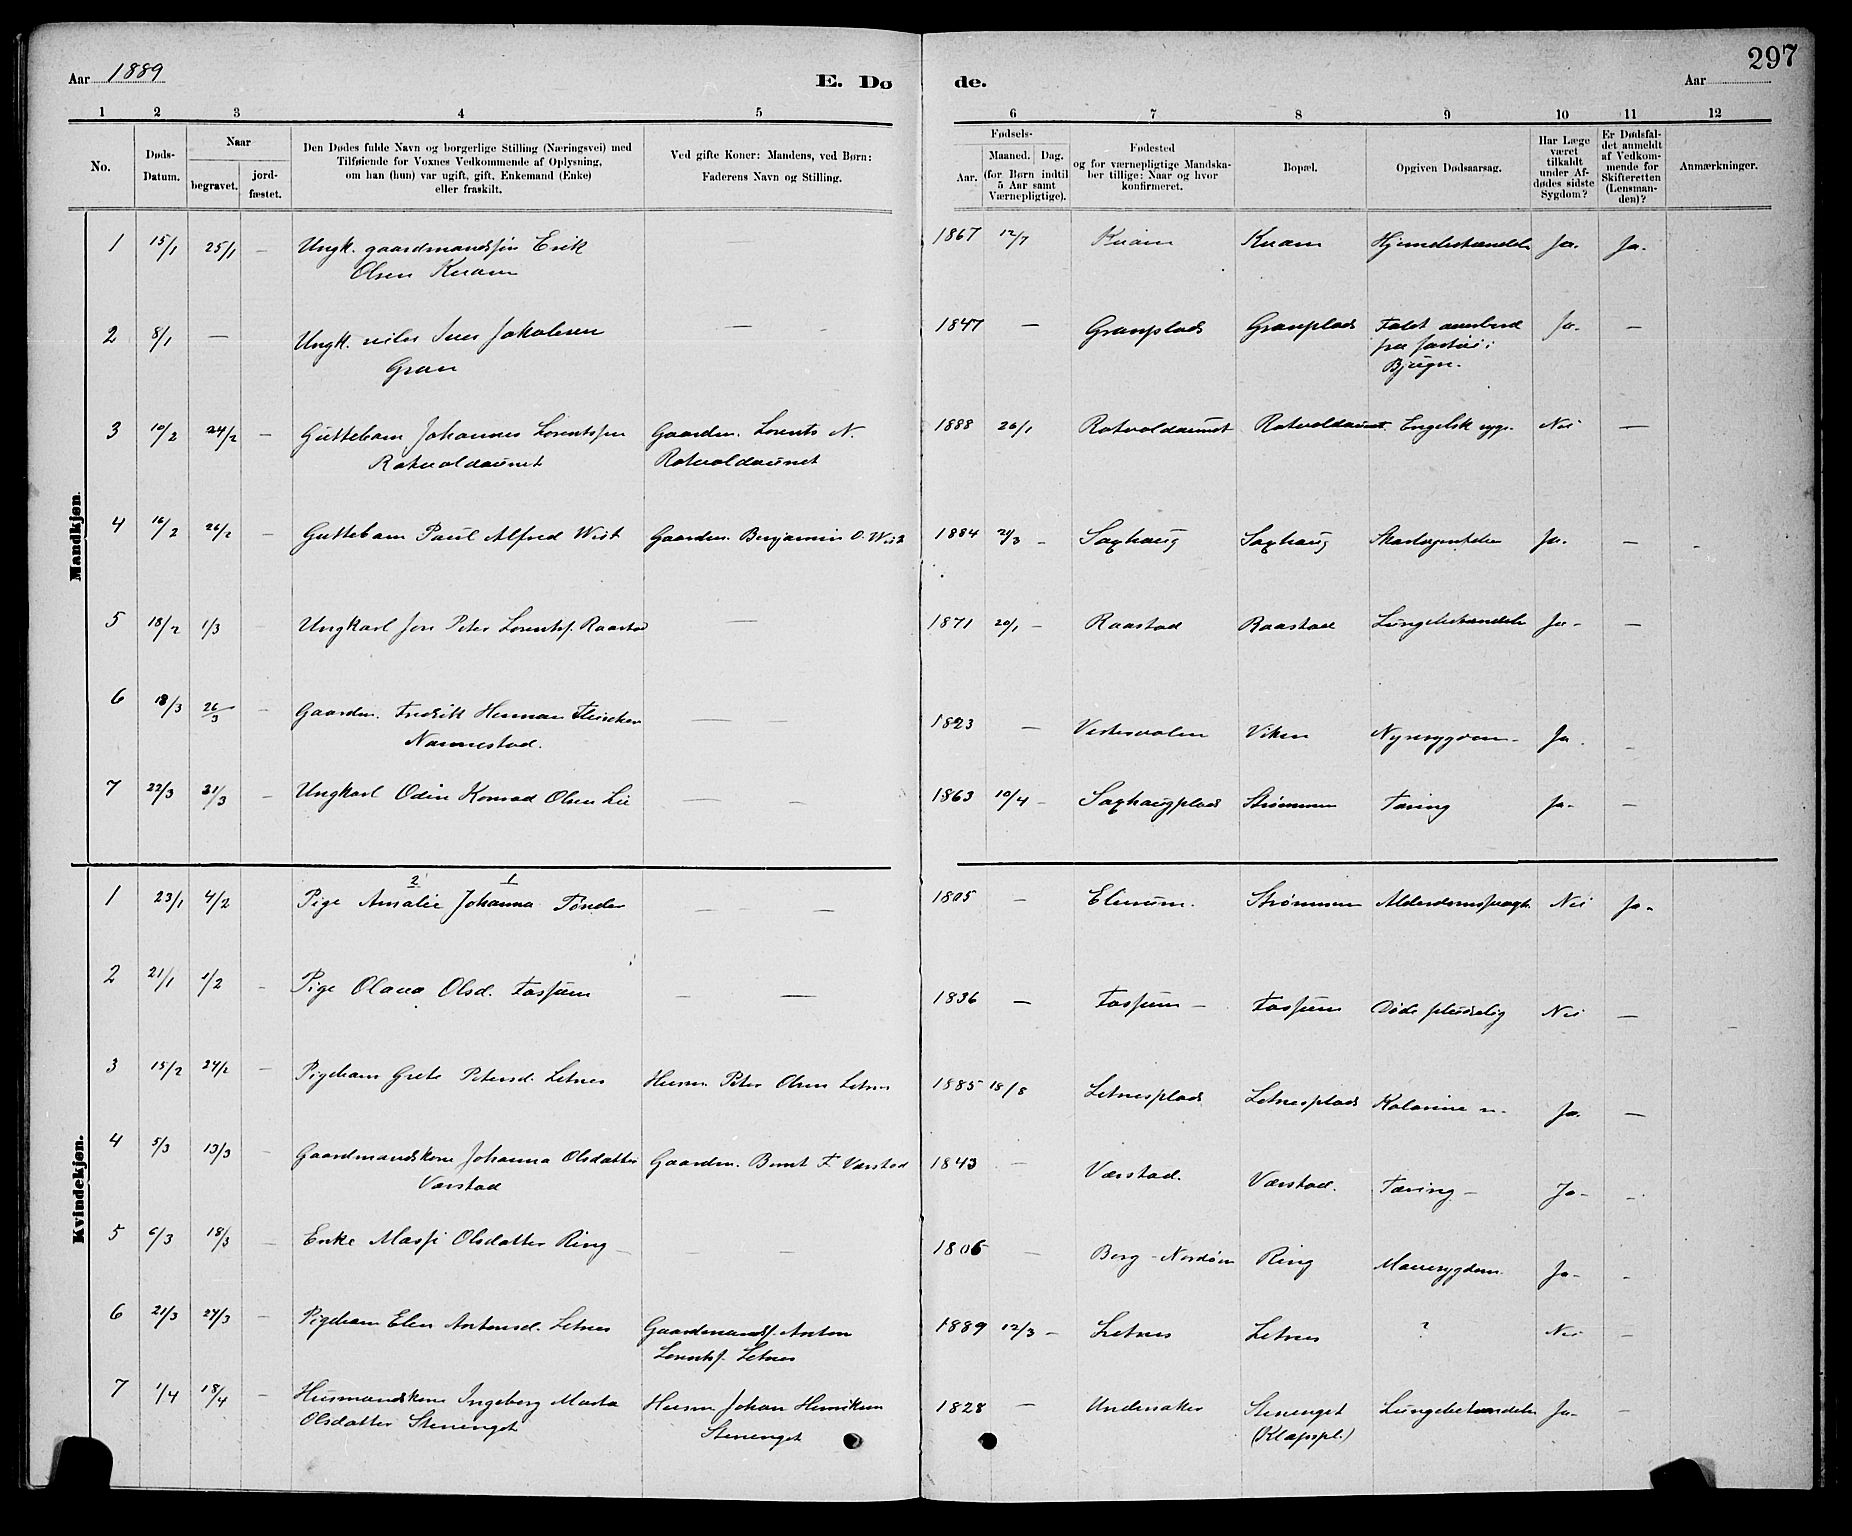 297
Aar 1889
E. Dø de.
Aar
1 2 3 4 5 6 7 8 9 10 11 12
No.
Døds-Datum.
Naar
begravet.
jord-fæstet.
Den Dødes fulde Navn og borgerlige Stilling (Næringsvei) med
Tilføiende for Voxnes Vedkommende af Oplysning,
om han (hun) var ugift, gift, Enkemand (Enke)
eller fraskilt.
Ved gifte Koner: Mandens, ved Børn:
Faderens Navn og Stilling.
Fødsels-
Aar.
Maaned. Dag.
(for Børn indtil
5 Aar samt
Værnepligtige).
Fødested
og for værnepligtige Mandska-
ber tillige: Naar og hvor
konfirmeret.
Bopæl.
Opgiven Dødsaarsag.
Har Læge
været
tilkaldt
under Af-
dødes sidste
Sygdom?
Er Dødsfal-
det anmeldt
af Vedkom-
mende for
Skifteretten
(Lensman-
den)?
Anmærkninger.
Mandkjøn.
1 15/1 25/1 – Ungk. gaardmandssøn Erik 1867 12/7 Kvam Kvam Hjernebetændelse Ja. Ja.
Olsen Kvam
2 8/1 – Ungk. Iver Jakobsen – 1847 – Granplads Granplads Faldt overbord Ja. –
Gran fra i
Bjugn.
3 10/2 24/2 – Guttebarn Johannes Lorentssen Gaardm. Lorents N. 1888 26/1 Rotvoldaunet Rotvoldaunet Engelsk syge. Nei –
Rotvoldaunet Rotvoldaunet
4 16/2 26/2 – Guttebarn Paul Alfred Wist Gaardm. Benjamin O. Wist 1884 21/3 – Saxhaug Saxhaug Ja. –
5 18/2 1/3 Ungkarl Jon Peter Lorentsf. Raastad – 1871 20/1 – Raastad Raastad Lungebetændelse Ja – –
6 18/3 26/3 – Gaardm. Fredrik Herman Fleischer – – 1823 – Vesteraalen Viken Nyresygdom – Ja. –
Nannestad.
7 22/3 31/3 – Ungkarl Odin Konrad Olsen Lie – – 1863 10/4 – Saxhaugplads Strømmen Tæring Ja – –
Kvindekjøn.
2 1
1 23/1 4/2 Pige Amalie Johanna Tønder – – – 1805 – Elverum. Strømmen Nei Ja –
2 21/1 1/2 – Pige Olava Olsd. Fossum – – 1836 – Fossum – Fossum Døde pludselig Nei –
3 15/2 24/2 – Pigebarn Grete Petersd. Letnes Husm. Peter Olsen Letnes 1885 18/8 Letnesplads Letnesplads Ja. –
4 5/3 13/3 – Gaardmandskone Johanna Olsdatter Gaardm. Bernt F. Værstad 1843 – Værstad. Værstad. Tæring – Ja – –
Værstad
5 6/3 18/3 – Enke Massi Olsdatter Ring – – – 1806 – Borg – Nordøen Ring Mavesygdom Ja – –
6 21/3 27/3 – Pigebarn Elen Antonsd. Letnes Gaardmandsf. Anton 1889 12/3 – Letnes Letnes ? Nei –
Lorentsf. Letnes
7 1/4 18/4 – Husmandskone Ingeborg Marta Husm. Johan Henriksen 1828 – Undersaker Stenenget Lungebetændelse Ja – –
Olsdatter Stenenget Stenenget (Klapspl.)